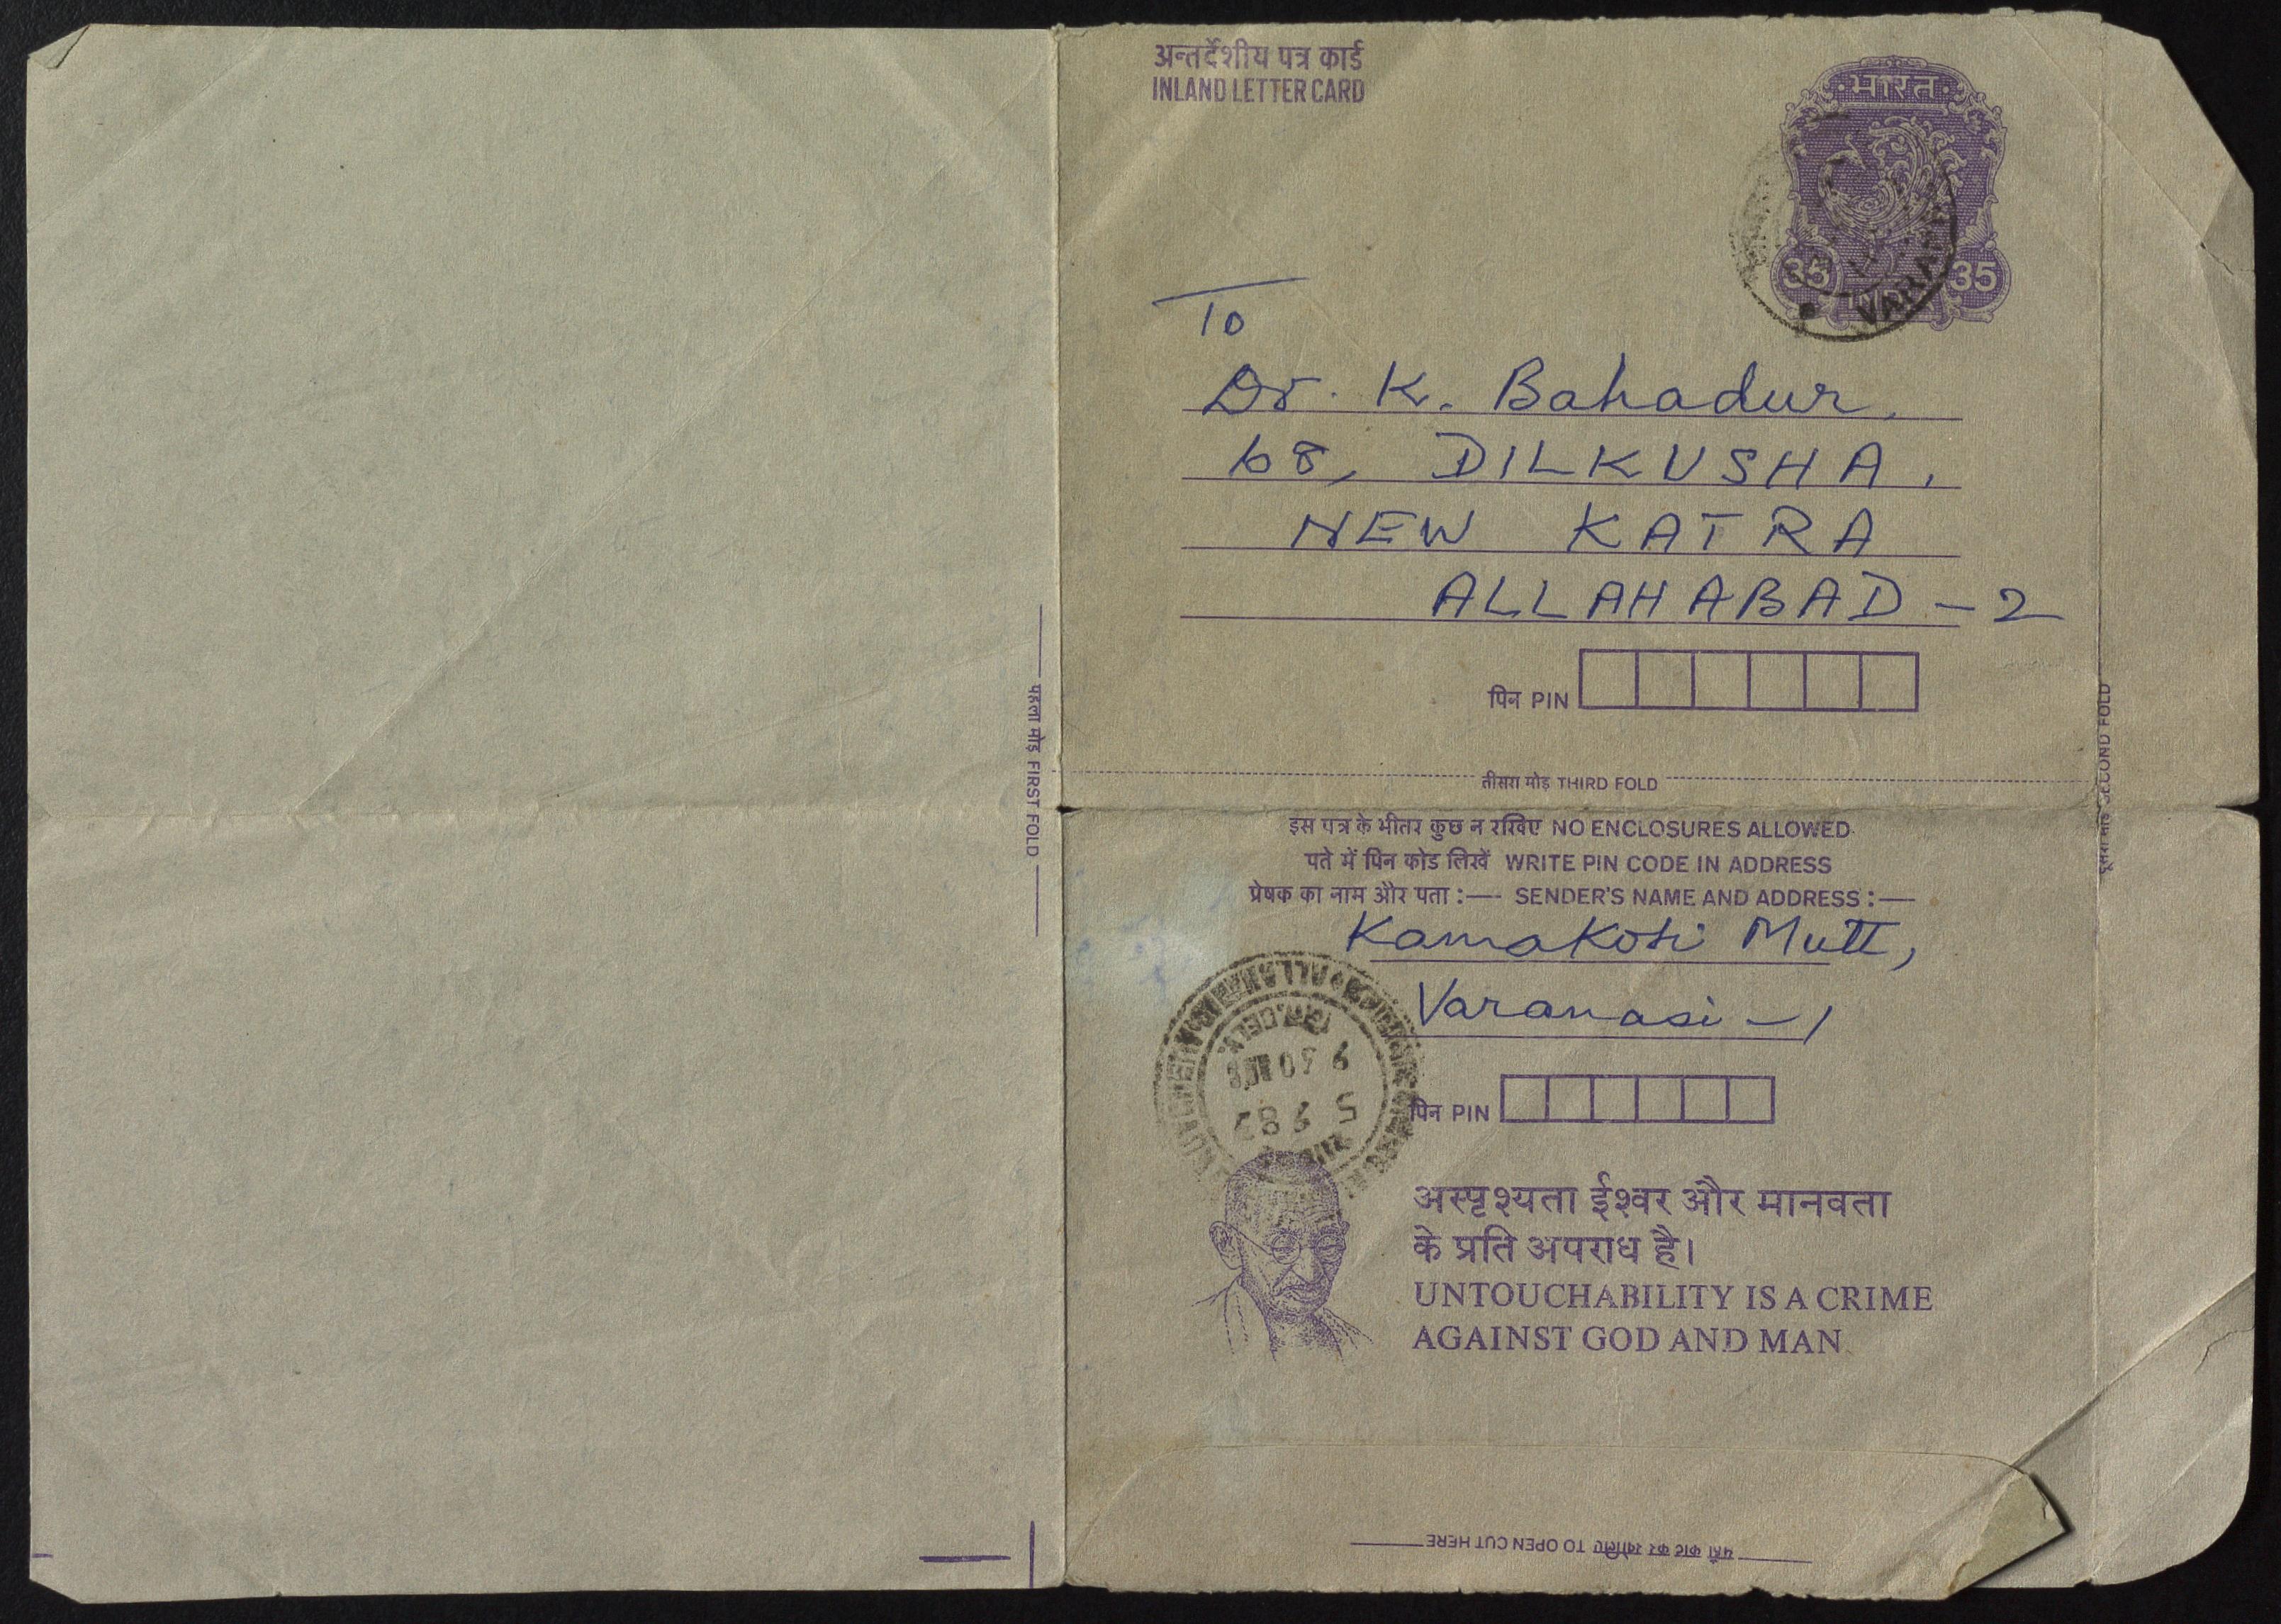 अन्तर्देशीय पत्र कार्ड
INLAND LETTER CARD
भारत
35 35
INDIA
VARANASI
To
Dr. K. Bahadur,
68, DILKUSHA,
NEW KATRA
ALLAHABAD - 2
पिन PIN
पहला मोड़ FIRST FOLD
दूसरा मोड़ SECOND FOLD
तीसरा मोड़ THIRD FOLD
इस पत्र के भीतर कुछ न रखिए NO ENCLOSURES ALLOWED
पते में पिन कोड लिखें WRITE PIN CODE IN ADDRESS
प्रेषक का नाम और पता :— SENDER'S NAME AND ADDRESS :—
Kamakoti Mutt,
Varanasi - 1
पिन PIN
अस्पृश्यता ईश्वर और मानवता
के प्रति अपराध है।
UNTOUCHABILITY IS A CRIME
AGAINST GOD AND MAN
यहाँ काट कर खोलिए TO OPEN CUT HERE